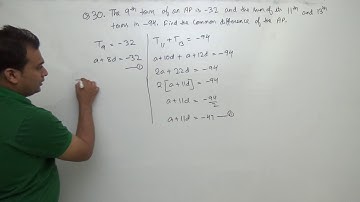 Q30. The 9th term of an AP is -32 and the sum of its 11th and 13th
term is -94. Find the common difference of the AP.
T9 = -32
a+8d = -32 —①
T11 + T13 = -94
a+10d + a+12d = -94
2a + 22d = -94
2[a+11d] = -94
a+11d = -94/2
a+11d = -47 —②